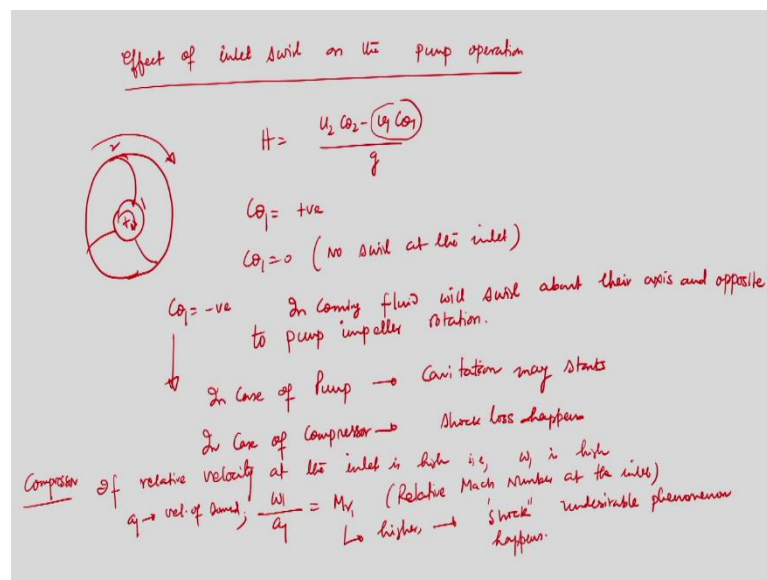 Effect of inlet swirl on the pump operation
H = U₂ Cθ₂ - U₁ Cθ₁
g
2
1
Cθ₁ = +ve
Cθ₁ = 0 (No swirl at the inlet)
Cθ₁ = -ve In coming fluid will swirl about their axis and opposite
to pump impeller rotation.
In case of Pump → Cavitation may starts
In case of Compressor → Shock loss happens
Compressor If relative velocity at the inlet is high i.e, w₁ is high
a₁ → vel. of sound; w₁/a₁ = Mr₁ (Relative Mach Number at the inlet)
↳ higher, → "shock" undesirable phenomenon
happens.